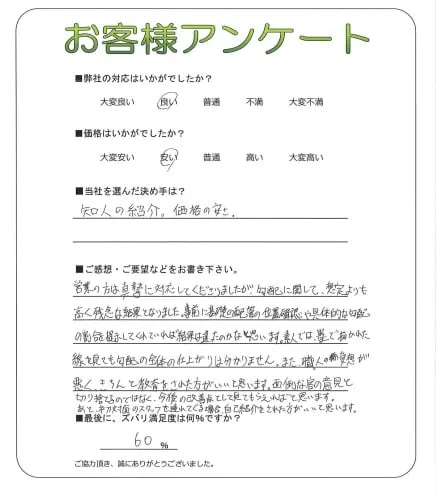 お客様アンケート
■弊社の対応はいかがでしたか？
大変良い 良い 普通 不満 大変不満
■価格はいかがでしたか？
大変安い 安い 普通 高い 大変高い
■当社を選んだ決め手は？
知人の紹介。価格の安さ.
■ご感想・ご要望などをお書き下さい。
営業の方は真摯に対応してくださりましたが勾配に関して、想定よりも
高く残念な結果となりました。事前に基礎の配管の位置確認や具体的な勾配
の数値を提示してくれていれば結果は違たのかなと思います。素人では、墨で書かれた
線を見ても勾配の全体の仕上がりは分かりません。また、職人の態度が
悪く きちんと教育をされた方がいいと思います。面倒な客の意見と
切り捨てるのではなく、今後の改善点として見てもらえればと思います。
あと、初対面のスタッフを連れてくる場合、自己紹介をされた方がいいと思います。
■最後に、ズバリ満足度は何%ですか？
60 %
ご協力頂き、誠にありがとうございました。